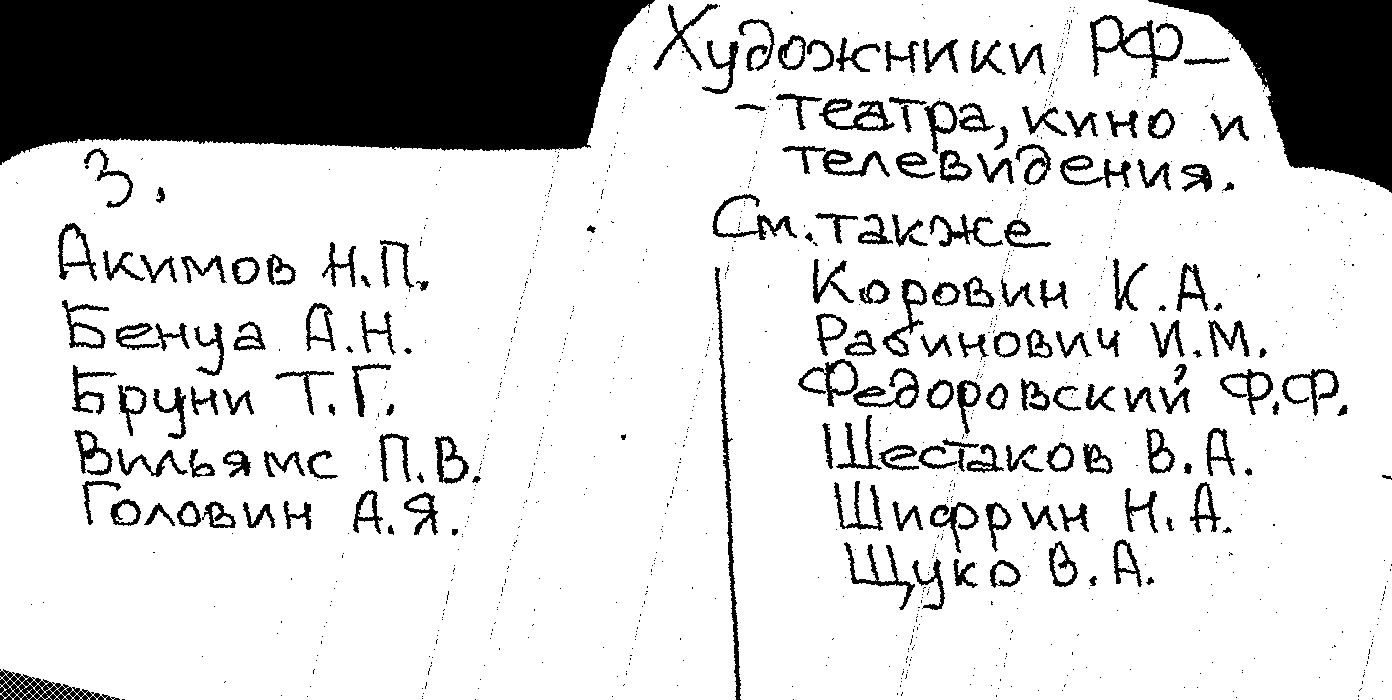 Художники РФ –
– театра, кино и
телевидения.
См. также
3.
Акимов Н.П.
Бенуа А.Н.
Бруни Т.Г.
Вильямс П.В.
Головин А.Я.
Коровин К.А.
Рабинович И.М.
Федоровский Ф.Ф.
Шестаков В.А.
Шифрин Н.А.
Щуко В.А.